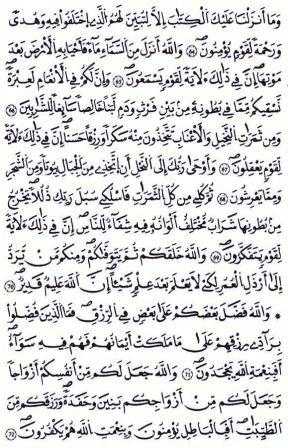 وَمَا أَنزَلْنَا عَلَيْكَ الْكِتَابَ إِلَّا لِتُبَيِّنَ لَهُمُ الَّذِي اخْتَلَفُوا فِيهِ وَهُدًى
وَرَحْمَةً لِّقَوْمٍ يُؤْمِنُونَ ٦٤ وَاللَّهُ أَنزَلَ مِنَ السَّمَاءِ مَاءً فَأَحْيَا بِهِ الْأَرْضَ بَعْدَ
مَوْتِهَا إِنَّ فِي ذَٰلِكَ لَآيَةً لِّقَوْمٍ يَسْمَعُونَ ٦٥ وَإِنَّ لَكُمْ فِي الْأَنْعَامِ لَعِبْرَةً
نُّسْقِيكُم مِّمَّا فِي بُطُونِهِ مِن بَيْنِ فَرْثٍ وَدَمٍ لَّبَنًا خَالِصًا سَائِغًا لِّلشَّارِبِينَ ٦٦
وَمِن ثَمَرَاتِ النَّخِيلِ وَالْأَعْنَابِ تَتَّخِذُونَ مِنْهُ سَكَرًا وَرِزْقًا حَسَنًا إِنَّ فِي ذَٰلِكَ لَآيَةً
لِّقَوْمٍ يَعْقِلُونَ ٦٧ وَأَوْحَىٰ رَبُّكَ إِلَى النَّحْلِ أَنِ اتَّخِذِي مِنَ الْجِبَالِ بُيُوتًا وَمِنَ الشَّجَرِ
وَمِمَّا يَعْرِشُونَ ٦٨ ثُمَّ كُلِي مِن كُلِّ الثَّمَرَاتِ فَاسْلُكِي سُبُلَ رَبِّكِ ذُلُلًا يَخْرُجُ
مِن بُطُونِهَا شَرَابٌ مُّخْتَلِفٌ أَلْوَانُهُ فِيهِ شِفَاءٌ لِّلنَّاسِ إِنَّ فِي ذَٰلِكَ لَآيَةً
لِّقَوْمٍ يَتَفَكَّرُونَ ٦٩ وَاللَّهُ خَلَقَكُمْ ثُمَّ يَتَوَفَّاكُمْ وَمِنكُم مَّن يُرَدُّ
إِلَىٰ أَرْذَلِ الْعُمُرِ لِكَيْ لَا يَعْلَمَ بَعْدَ عِلْمٍ شَيْئًا إِنَّ اللَّهَ عَلِيمٌ قَدِيرٌ ٧٠
* وَاللَّهُ فَضَّلَ بَعْضَكُمْ عَلَىٰ بَعْضٍ فِي الرِّزْقِ فَمَا الَّذِينَ فُضِّلُوا
بِرَادِّي رِزْقِهِمْ عَلَىٰ مَا مَلَكَتْ أَيْمَانُهُمْ فَهُمْ فِيهِ سَوَاءٌ
أَفَبِنِعْمَةِ اللَّهِ يَجْحَدُونَ ٧١ وَاللَّهُ جَعَلَ لَكُم مِّنْ أَنفُسِكُمْ أَزْوَاجًا
وَجَعَلَ لَكُم مِّنْ أَزْوَاجِكُم بَنِينَ وَحَفَدَةً وَرَزَقَكُم مِّنَ
الطَّيِّبَاتِ أَفَبِالْبَاطِلِ يُؤْمِنُونَ وَبِنِعْمَتِ اللَّهِ هُمْ يَكْفُرُونَ ٧٢